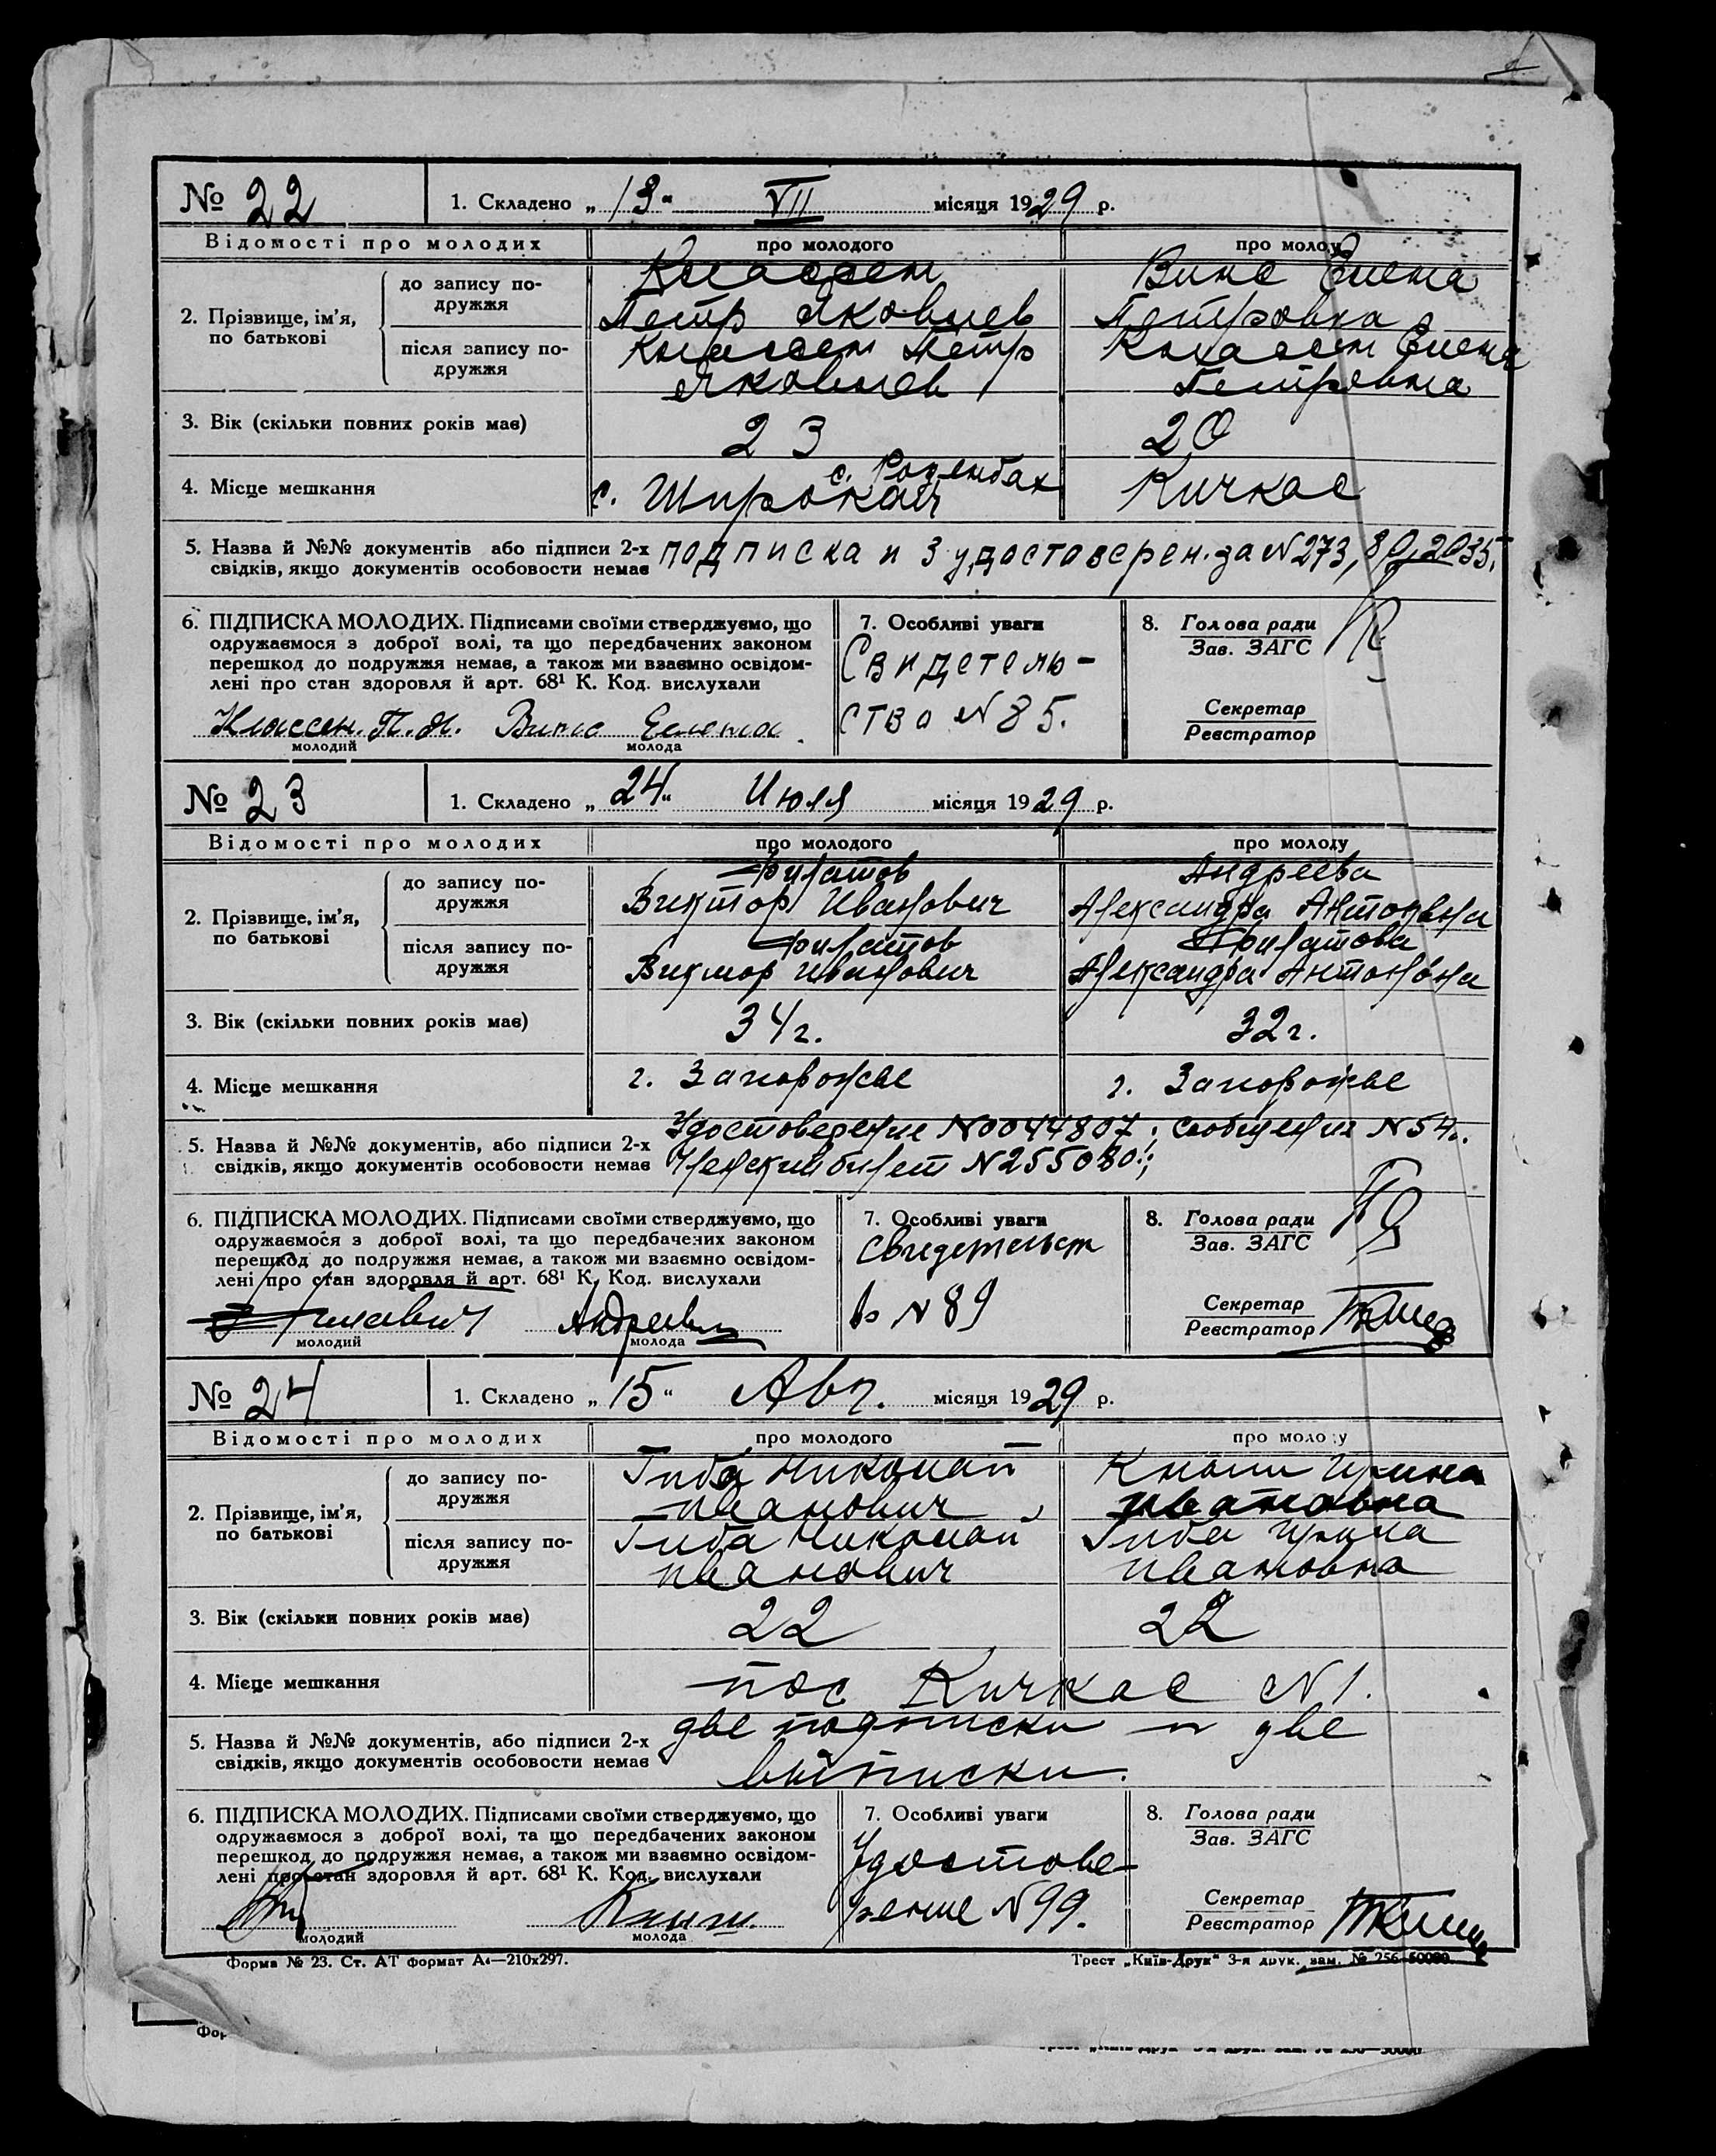 № 22
1. Складено „13“ VII місяця 1929 р.
Відомості про молодих про молодого про молоду
2. Прізвище, ім’я, по батькові
до запису подружжя
Классен
Петр Яковлев
Винс Елена
Петровна
після запису подружжя
Классен Петр
Яковлев
Классен Елена
Петровна
3. Вік (скільки повних років має) 23 20
4. Місце мешкання
с. Розенбах
с. Широкая
Кичкас
5. Назва й №№ документів або підписи 2-х
свідків, якщо документів особовости немає
подписка и 3 удостоверен. за N 273, 80, 2035.
6. ПІДПИСКА МОЛОДИХ. Підписами своїми стверджуємо, що
одружаємося з доброї волі, та що передбачених законом
перешкод до подружжя немає, а також ми взаємно освідом-
лені про стан здоровля й арт. 68¹ К. Код. вислухали
Классен. П. Я. Винс Елена
молодий молода
7. Особливі уваги
Свидетель-
ство N 85.
8. Голова ради
Зав. ЗАГС
Секретар
Реєстратор
№ 23
1. Складено „24“ Июля місяця 1929 р.
Відомості про молодих про молодого про молоду
2. Прізвище, ім’я,
по батькові
до запису по-
дружжя
Филатов
Виктор Иванович
Андреева
Александра Антоновна
після запису по-
дружжя
Филатов
Виктор Иванович
Филатова
Александра Антоновна
3. Вік (скільки повних років має) 34 г. 32 г.
4. Місце мешкання г. Запорожье г. Запорожье
5. Назва й №№ документів, або підписи 2-х
свідків, якщо документів особовости немає
Удостоверение N 0044807; сообщения N 54.
Членский билет N 255080;
6. ПІДПИСКА МОЛОДИХ. Підписами своїми стверджуємо, що
одружаємося з доброї волі, та що передбачених законом
перешкод до подружжя немає, а також ми взаємно освідом-
лені про стан здоровля й арт. 68¹ К. Код. вислухали
Андреева
молодий молода
7. Особливі уваги
Свидетельст
во N 89
8. Голова ради
Зав. ЗАГС
Секретар
Реєстратор
№ 24
1. Складено „15“ Авг. місяця 1929 р.
Відомості про молодих про молодого про молоду
2. Прізвище, ім’я,
по батькові
до запису по-
дружжя
Гиба Николай
Иванович
Книш Ирина
Ивановна
після запису по-
дружжя
Гиба Николай
Иванович
Гиба Ирина
Ивановна
3. Вік (скільки повних років має) 22 22
4. Місце мешкання пос Кичкас N 1.
5. Назва й №№ документів, або підписи 2-х
свідків, якщо документів особовости немає
две подписки и две
выписки.
6. ПІДПИСКА МОЛОДИХ. Підписами своїми стверджуємо, що
одружаємося з доброї волі, та що передбачених законом
перешкод до подружжя немає, а також ми взаємно освідом-
лені про стан здоровля й арт. 68¹ К. Код. вислухали
Книш
молодий молода
7. Особливі уваги
Удостове-
рение N 99.
8. Голова ради
Зав. ЗАГС
Секретар
Реєстратор
Форма № 23. Ст. АТ формат А₄—210х297.
Трест „Київ-Друк“ 3-я друк. зам. № 256—50000.